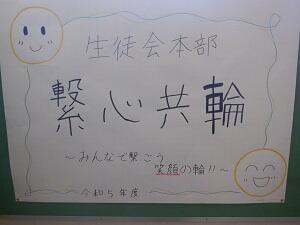 生徒会本部
繋心共輪
～みんなで繋ごう
笑顔の輪!!～
令和5年度